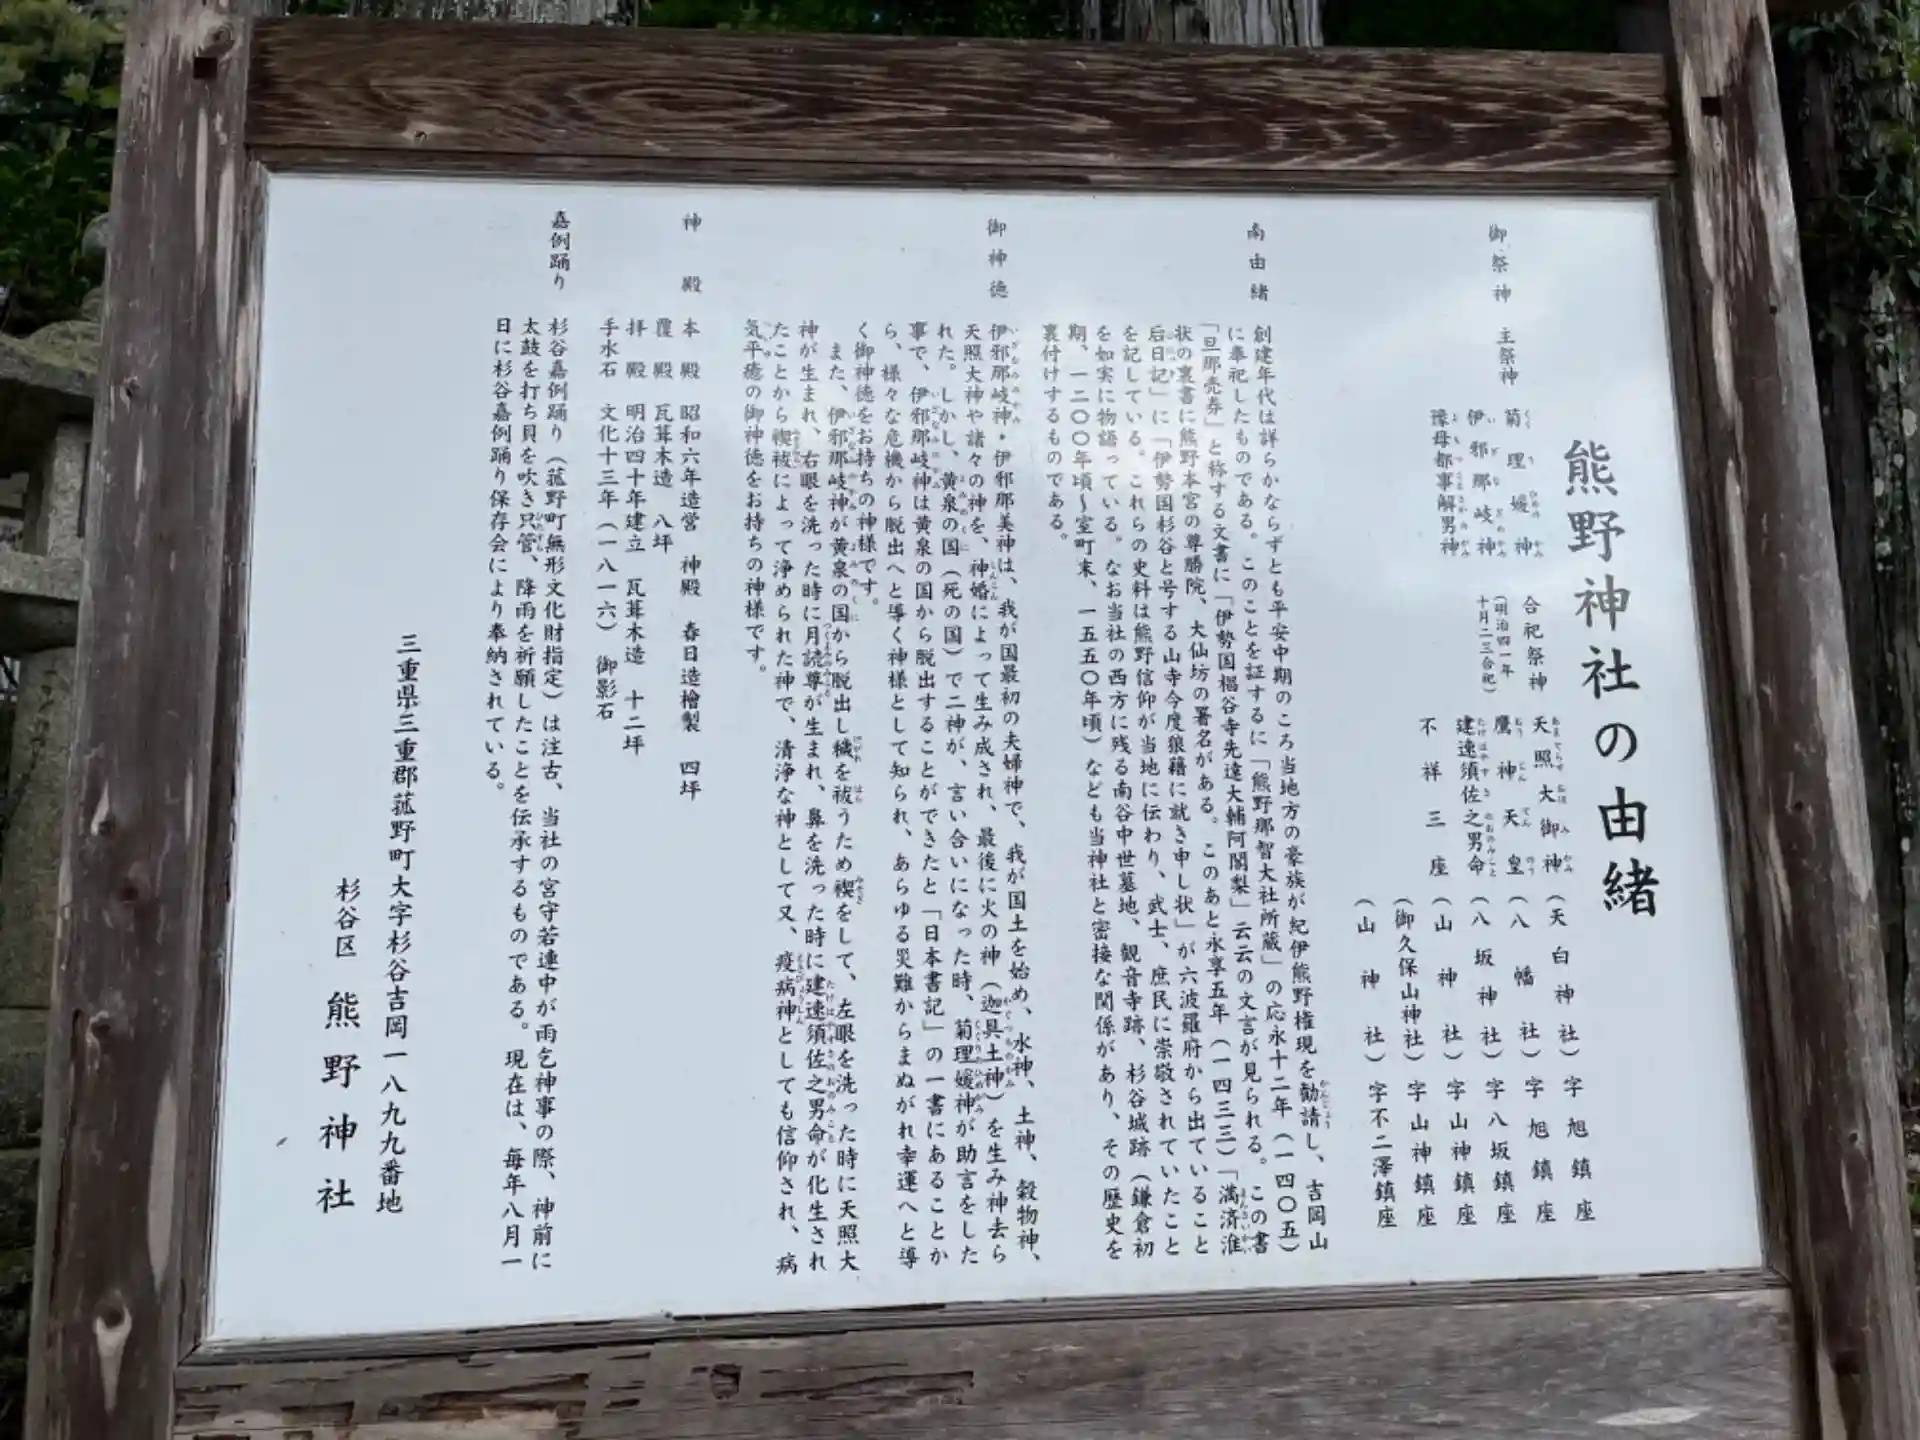 熊野神社の由緒
御祭神 主祭神 菊理媛神 合祀祭神 天照大御神(天白神社)字旭鎮座
伊邪那岐神 (明治四一年 鷹神天皇(八幡社)字旭鎮座
豫母都事解男神 十月二三合祀) 建速須佐之男命(八坂神社)字八坂鎮座
不祥三座(山神社)字山神鎮座
(御久保山神社)字山神鎮座
(山神社)字不二澤鎮座
南由緒 創建年代は詳らかならずとも平安中期のころ当地方の豪族が紀伊熊野権現を勧請し、吉岡山
に奉祀したものである。このことを証するに「熊野那智大社所蔵」の応永十二年(一四〇五)
「旦那売券」と称する文書に「伊勢国榲谷寺先達大輔阿闍梨」云云の文言が見られる。この書
状の裏書に熊野本宮の尊勝院、大仙坊の署名がある。このあと永享五年(一四三三)「満済准
后日記」に「伊勢国杉谷と号する山寺今度狼藉に就き申し状」が六波羅府から出ていること
を記している。これらの史料は熊野信仰が当地に伝わり、武士、庶民に崇敬されていたこと
を如実に物語っている。なお当社の西方に残る南谷中世墓地、観音寺跡、杉谷城跡(鎌倉初
期、一二〇〇年頃～室町末、一五五〇年頃)なども当神社と密接な関係があり、その歴史を
裏付けするものである。
御神徳 伊邪那岐神・伊邪那美神は、我が国最初の夫婦神で、我が国土を始め、水神、土神、穀物神、
天照大神や諸々の神を、神婚によって生み成され、最後に火の神(迦具土神)を生み神去ら
れた。しかし、黄泉の国(死の国)で二神が、言い合いになった時、菊理媛神が助言をした
事で、伊邪那岐神は黄泉の国から脱出することができたと「日本書記」の一書にあることか
ら、様々な危機から脱出へと導く神様として知られ、あらゆる災難からまぬがれ幸運へと導
く御神徳をお持ちの神様です。
また、伊邪那岐神が黄泉の国から脱出し穢を祓うため禊をして、左眼を洗った時に天照大
神が生まれ、右眼を洗った時に月読尊が生まれ、鼻を洗った時に建速須佐之男命が化生され
たことから禊祓によって浄められた神で、清浄な神として又、疫病神としても信仰され、病
気平癒の御神徳をお持ちの神様です。
神殿 本殿 昭和六年造営 神殿 春日造檜製 四坪
覆殿 瓦葺木造 八坪
拝殿 明治四十年建立 瓦葺木造 十二坪
手水石 文化十三年(一八一六) 御影石
嘉例踊り 杉谷嘉例踊り(菰野町無形文化財指定)は注古、当社の宮守若連中が雨乞神事の際、神前に
太鼓を打ち貝を吹き只管、降雨を祈願したことを伝承するものである。現在は、毎年八月一
日に杉谷嘉例踊り保存会により奉納されている。
三重県三重郡菰野町大字杉谷吉岡一八九九番地
杉谷区 熊野神社